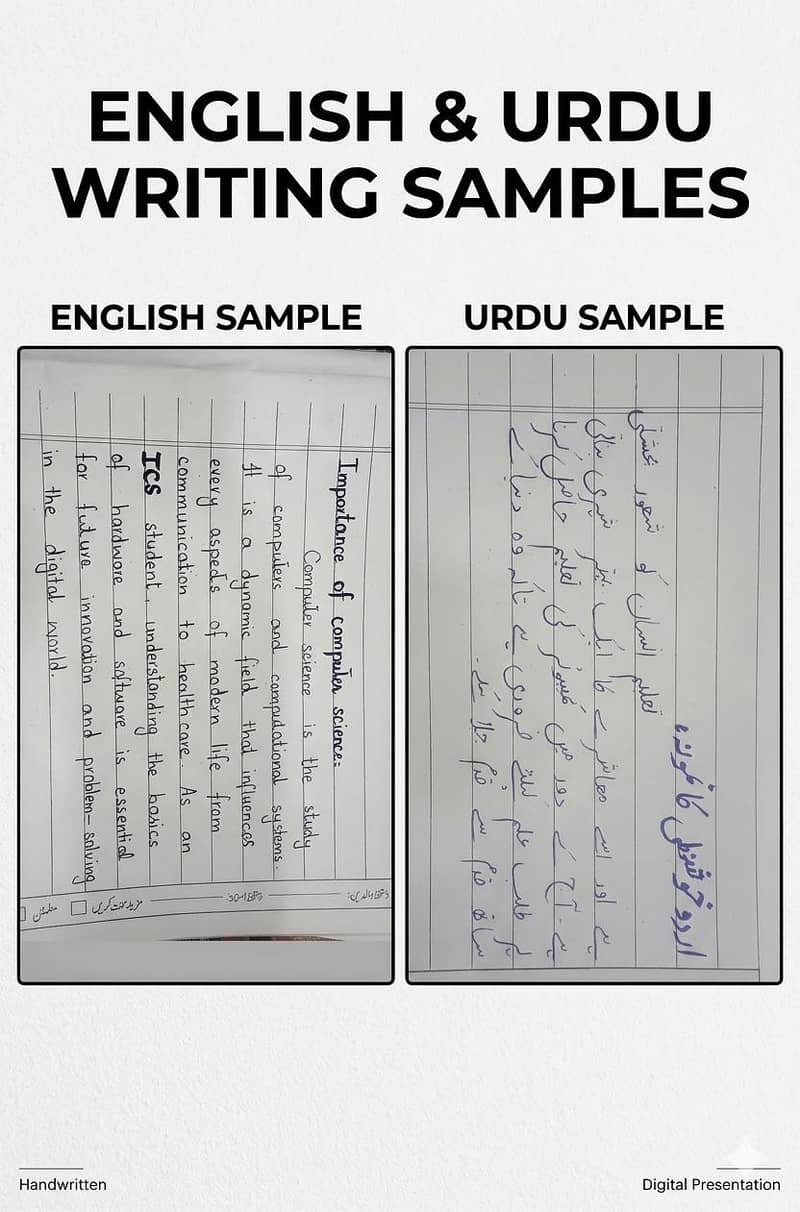 ENGLISH & URDU
WRITING SAMPLES
ENGLISH SAMPLE
Importance of computer science:
Computer science is the study
of computers and computational systems.
It is a dynamic field that influences
every aspects of modern life from
communication to healthcare. As an
ICS student, understanding the basics
of hardware and software is essential
for future innovation and problem-solving
in the digital world.
مزید محنت کریں
مطمئن
URDU SAMPLE
اردو خوشخطی کا نمونہ:
تعلیم انسان کو شعور بخشتی
ہے اور اسے معاشرے کا ایک بہتر شہری بناتی
ہے۔ آج کے دور میں کمپیوٹر کی تعلیم حاصل کرنا
ہر طالب علم کیلئے ضروری ہے تاکہ وہ دنیا کے
ساتھ قدم سے قدم ملا سکے۔
Handwritten
Digital Presentation